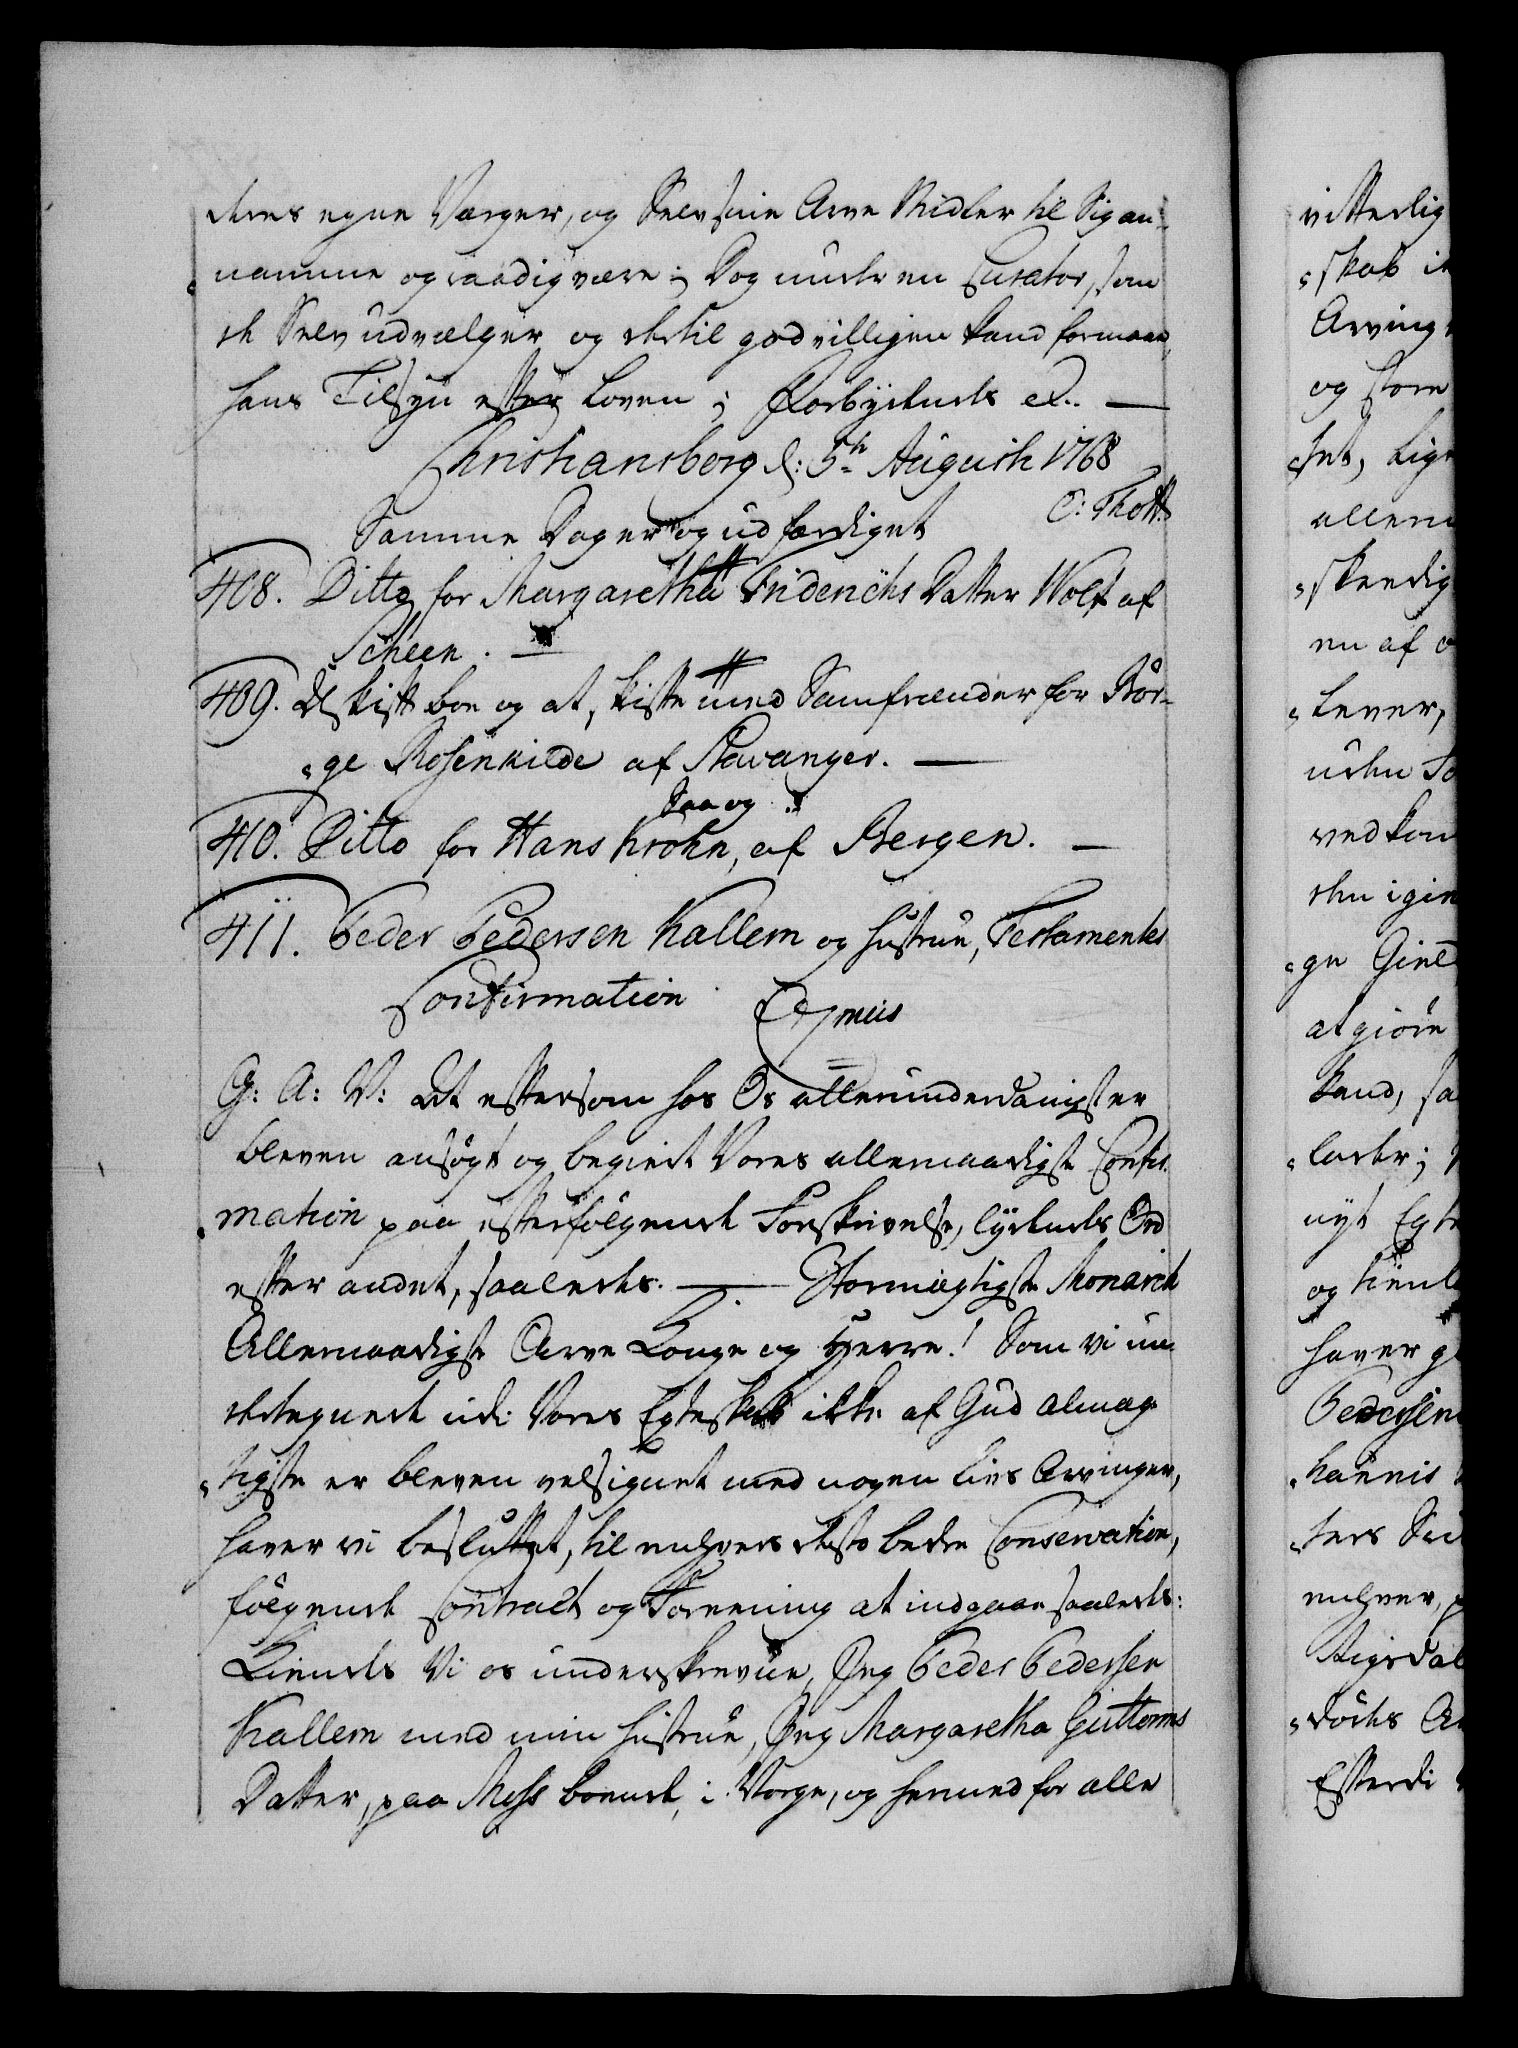 deres egne Værger, og Selv sine Arve Midler til Sig an-
namme og raadig være; Dog under en Curator, som
de Selv udvælger og dertil godvilligen kand formaae,
hans Tilsyn efter Loven; Forbydendes &. —
Christiansborg d: 5te Augusti 1768
O: Thott.
Samme Dag er og udfærdiget
408. Ditto for Margaretha Friderichs Datter Wolf af
Scheen. —
409. Uskift boe og at skifte med Samfrænder for Bör-
ge Rosenkilde af Stavanger. —
Saa og
410. Ditto for Hans Krohn, af Bergen. —
411. Peder Pedersen Kallem og Hustrue, Testamentes
Confirmation.
G: A: V: At eftersom hos Os allerunderdanigst er
bleven ansögt og begiert Vores allernaadigste Confir-
mation paa efterfölgende Forskrivelse, lydendes Ord
efter andet, saaledes: — Stormægtigste Monarch
Allernaadigste Arve Konge og Herre! Som vi un-
dertegnede udi Vores Egteskab ikke af Gud almæg-
tigste er bleven velsignet med nogen Livs Arvinger,
haver vi besluttet, til enhvers desto bedre Conservation,
fölgende Contract og Forening at indgaae saaledes:
Kiendes Vi os underskrevne, Jeg Peder Pedersen
Kallem med min Hustrue, Jeg Margaretha Guttorms
Datter, paa Moss boende, i Norge, og hermed for alle
vitterlig
skab i
Arving
og store
het, lige
allern
skendig
en af
lever,
uden
ved kom
den igien
ge
at giöre
kand, sa
lader;
nyt Egte
og tienl
haver g
Pedersen
hannis
ters
enhver,
döds
Efterdi